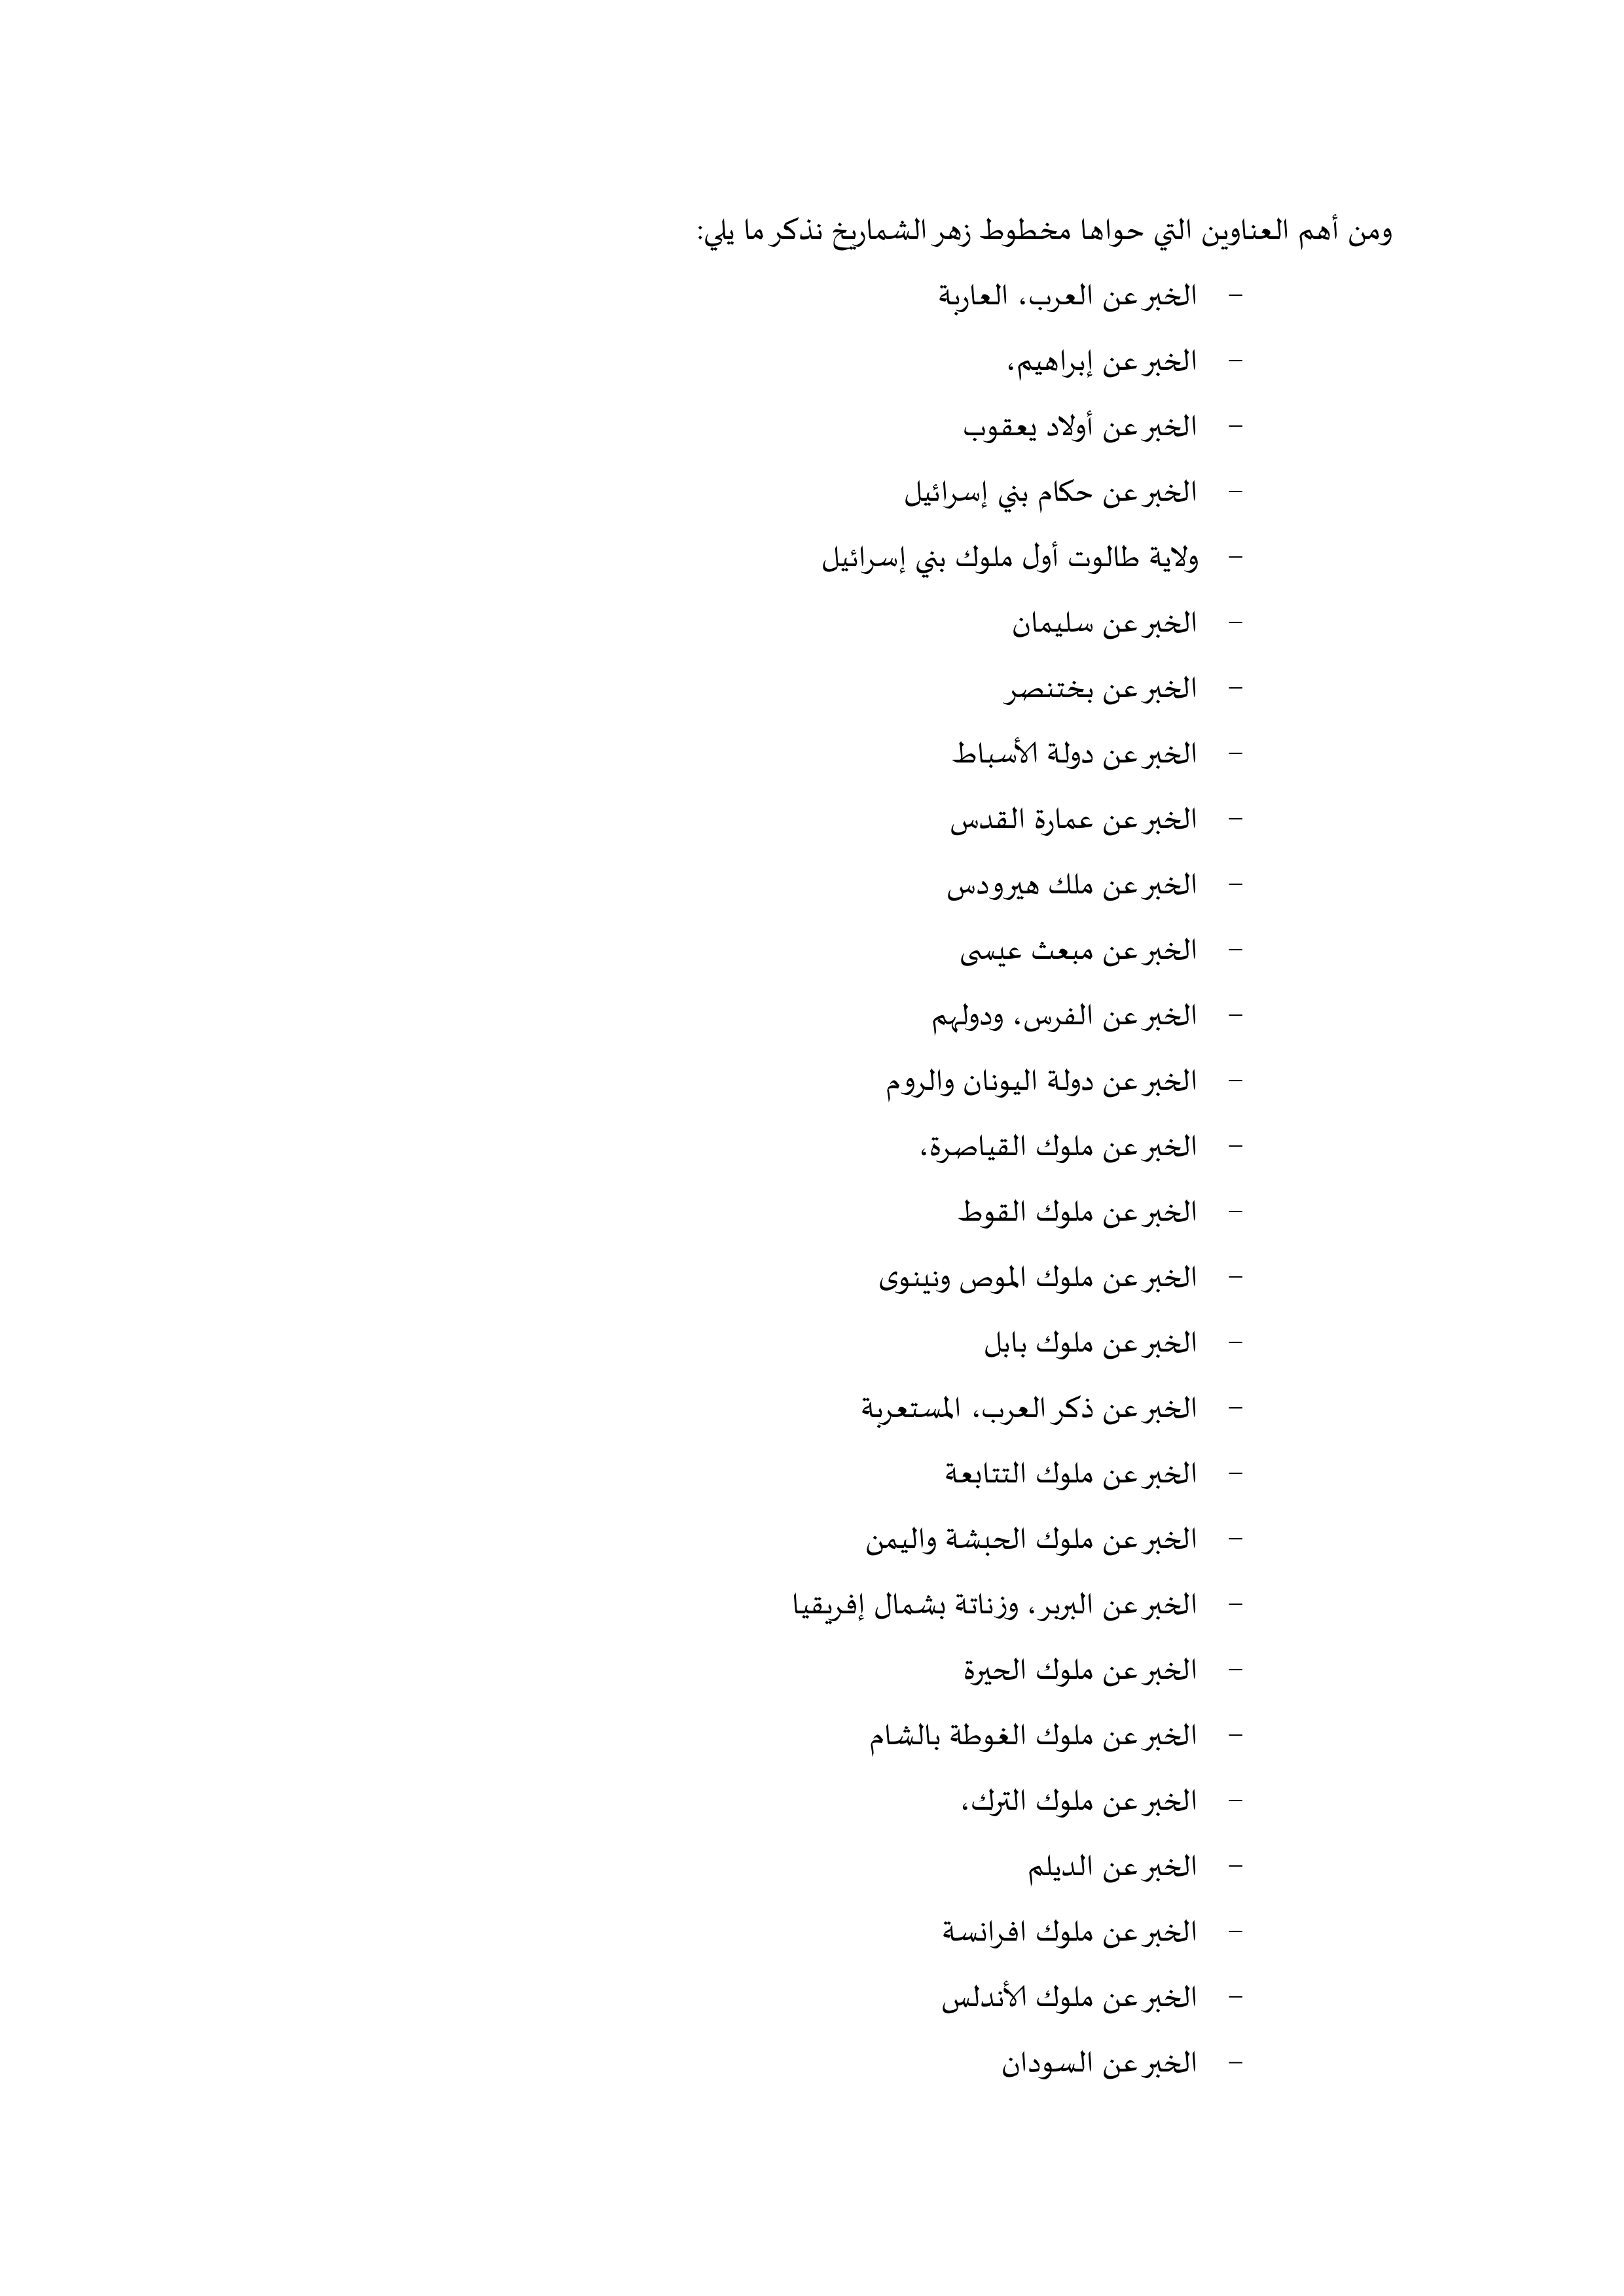 ومن أهم العناوين التي حواها مخطوط زهر الشماريخ نذكر ما يلي:
- الخبر عن العرب، العاربة
- الخبر عن إبراهيم،
- الخبر عن أولاد يعقوب
- الخبر عن حكام بني إسرائيل
- ولاية طالوت أول ملوك بني إسرائيل
- الخبر عن سليمان
- الخبر عن بختنصر
- الخبر عن دولة الأسباط
- الخبر عن عمارة القدس
- الخبر عن ملك هيرودس
- الخبر عن مبعث عيسى
- الخبر عن الفرس، ودولهم
- الخبر عن دولة اليونان والروم
- الخبر عن ملوك القياصرة،
- الخبر عن ملوك القوط
- الخبر عن ملوك الموص ونينوى
- الخبر عن ملوك بابل
- الخبر عن ذكر العرب، المستعربة
- الخبر عن ملوك التتابعة
- الخبر عن ملوك الحبشة واليمن
- الخبر عن البربر، وزناتة بشمال إفريقيا
- الخبر عن ملوك الحيرة
- الخبر عن ملوك الغوطة بالشام
- الخبر عن ملوك الترك،
- الخبر عن الديلم
- الخبر عن ملوك افرانسة
- الخبر عن ملوك الأندلس
- الخبر عن السودان